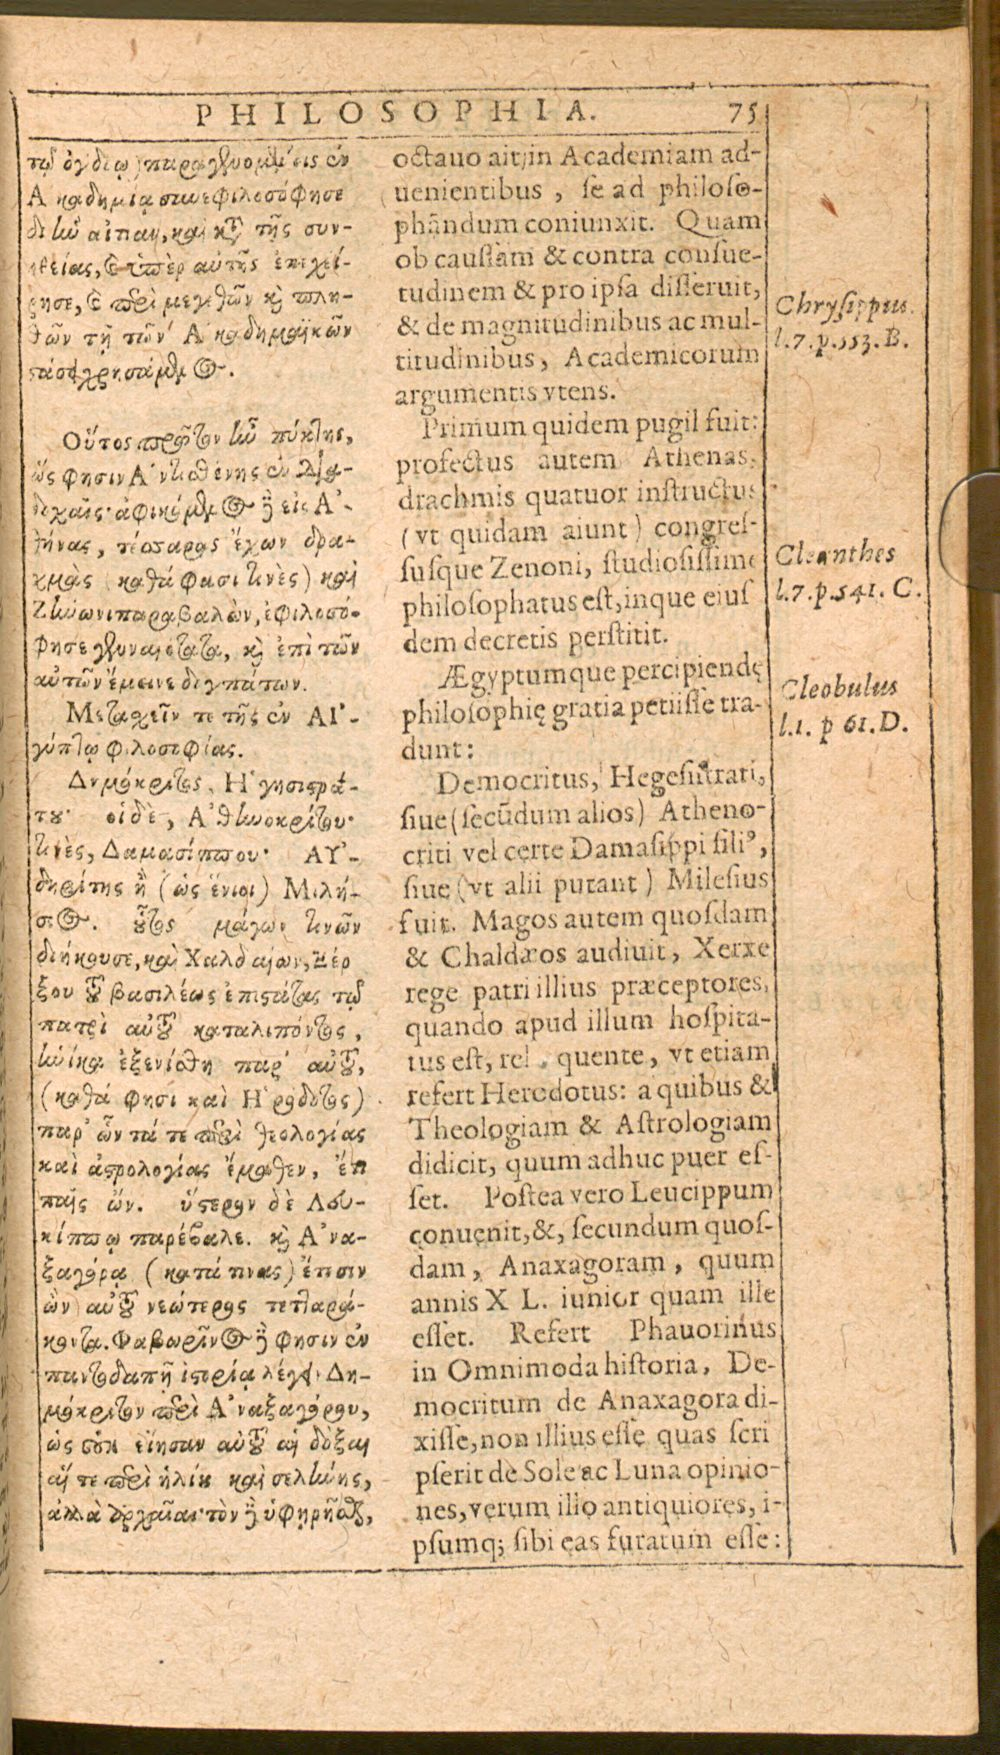 PHILOSOPHIA. 75
τῷ ὀγδίῳ) παραγενομένοις ἐν
Ἀκαδημίᾳ συνεφιλοσόφησε
δι' ἣν αἰτίαν, καὶ κατὰ τῆς συν-
ηθείας, καὶ ὑπὲρ αὐτῆς ἐπεχεί-
ρησε, καὶ περὶ μεγεθῶν καὶ πλη-
θῶν τῇ τῶν Ἀκαδημαϊκῶν
συστάσει χρησάμενος.
Οὗτος πρῶτον ἦν πύκτης,
ὥς φησιν Ἀντισθένης ἐν Δια-
δοχαῖς· ἀφικόμενος δὲ εἰς Ἀ-
θήνας, τέσσαρας ἔχων δρα-
χμὰς (καθά φασί τινες) καὶ
Ζήνωνι παραβαλὼν, ἐφιλοσό-
φησε γενναιότατα, καὶ ἐπὶ τῶν
αὐτῶν ἔμεινε δογμάτων.
Μετασχεῖν τε τῆς ἐν Αἰ-
γύπτῳ φιλοσοφίας.
Δημόκριτος, Ἡγησιστρά-
του· οἱ δὲ, Ἀθηνοκρίτου·
τινὲς, Δαμασίππου· Ἀβ-
δηρίτης ἢ (ὡς ἔνιοι) Μιλή-
σιος. οὗτος μάγων τινῶν
διήκουσε, καὶ Χαλδαίων, Ξέρ
ξου τοῦ βασιλέως ἐπιστάτας τῷ
πατρὶ αὐτοῦ καταλιπόντος,
ἡνίκα ἐξενίσθη παρ' αὐτοῦ,
(καθά φησι καὶ Ἡρόδοτος)
παρ' ὧν τά τε περὶ θεολογίας
καὶ ἀστρολογίας ἔμαθεν, ἔτι
παῖς ὤν. ὕστερον δὲ Λευ-
κίππῳ παρέβαλε. καὶ Ἀνα-
ξαγόρᾳ (κατά τινας) ἔτεσιν
ὢν αὐτοῦ νεώτερος τετταρά-
κοντα. Φαβωρῖνος δὲ φησιν ἐν
παντοδαπῇ ἱστορίᾳ λέγειν Δη-
μόκριτον περὶ Ἀναξαγόρου,
ὡς οὐκ εἴησαν αὐτοῦ αἱ δόξαι
αἵ τε περὶ ἡλίου καὶ σελήνης,
ἀλλὰ ἀρχαῖαι· τὸν δὲ ὑφῃρῆσθαι,
octauo ait, in Academiam ad-
uenientibus, se ad philoso-
phãndum coniunxit. Quam
ob caussam & contra consue-
tudinem & pro ipsa disseruit,
& de magnitudinibus ac mul-
titudinibus, Academicorum
argumentis vtens.
Primum quidem pugil fuit:
profectus autem Athenas,
drachmis quatuor instructus
(vt quidam aiunt) congres-
susque Zenoni, studiosissime
philosophatus est, inque eius
dem decretis perstitit.
Ægyptumque percipiendę
philosophię gratia petiisse tra-
dunt:
Democritus, Hegesistrati,
siue (secũdum alios) Atheno-
criti vel certe Damasippi filiꝰ,
siue (vt alii putant) Milesius
fuit. Magos autem quosdam
& Chaldæos audiuit, Xerxe
rege patri illius præceptores,
quando apud illum hospita-
tus est, rel quente, vt etiam
refert Herodotus: a quibus &
Theologiam & Astrologiam
didicit, quum adhuc puer es-
set. Postea vero Leucippum
conuenit, &, secundum quos-
dam, Anaxagoram, quum
annis XL. iunior quam ille
esset. Refert Phauorinus
in Omnimoda historia, De-
mocritum de Anaxagora di-
xisse, non illius esse quas scri
pserit de Sole ac Luna opinio-
nes, verum illo antiquiores, i-
psumq; sibi eas furatum esse:
Chrysippus.
l.7.p.553.B.
Cleanthes
l.7.p.541. C.
Cleobulus
l.1. p 61.D.